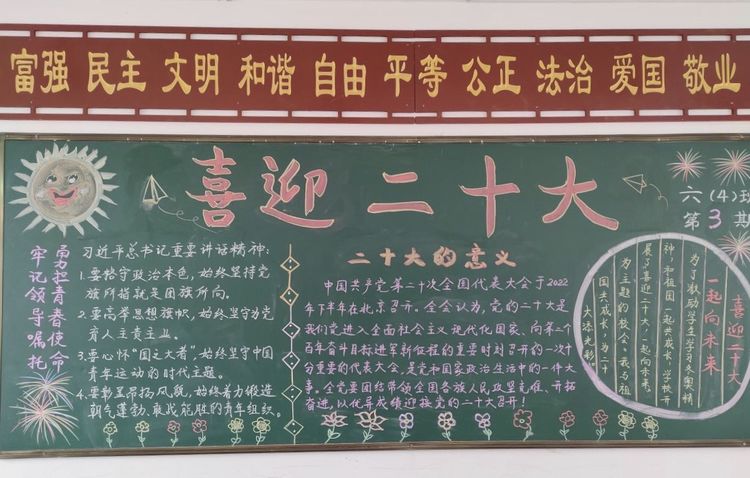 富强 民主 文明 和谐 自由 平等 公正 法治 爱国 敬业
喜迎二十大
六(4)班
第3期
勇担青春使命
牢记领导嘱托
习近平总书记重要讲话精神:
1.要恪守政治本色,始终坚持党
旗所指就是团旗所向。
2.要高举思想旗帜,始终坚守为党
育人主责主业。
3.要心怀“国之大者”,始终坚守中国
青年运动的时代主题。
4.要彰显昂扬风貌,始终着力锻造
朝气蓬勃、敢战能胜的青年组织。
二十大的意义
中国共产党第二十次全国代表大会于2022
年下半年在北京召开。全会认为,党的二十大是
我们党进入全面社会主义现代化国家、向第二个
百年奋斗目标进军新征程的重要时刻召开的一次十
分重要的代表大会,是党和国家政治生活中的一件大
事。全党要团结带领全国各族人民攻坚克难、开拓
奋进,以优异成绩迎接党的二十大召开!
喜迎二十大
一起向未来
为了激励学生学习冬奥精
神,和祖国一起共成长,学校开
展了喜迎二十大,一起向未来
为主题的校会,我与祖
国共成长,为二十
大添光彩。